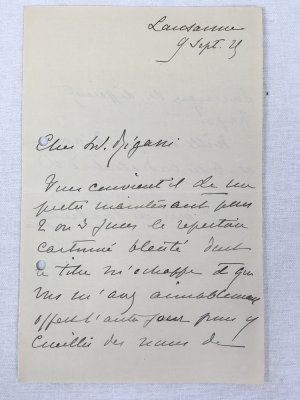 Lausanne
9 Sept. 25
Cher M.
Vous convient-il de me
prêter maintenant pour
2 ou 3 jours le répertoire
cartonné dont
le titre m'échappe et que
vous m'avez aimablement
offert l'autre jour pour y
cueillir des noms de